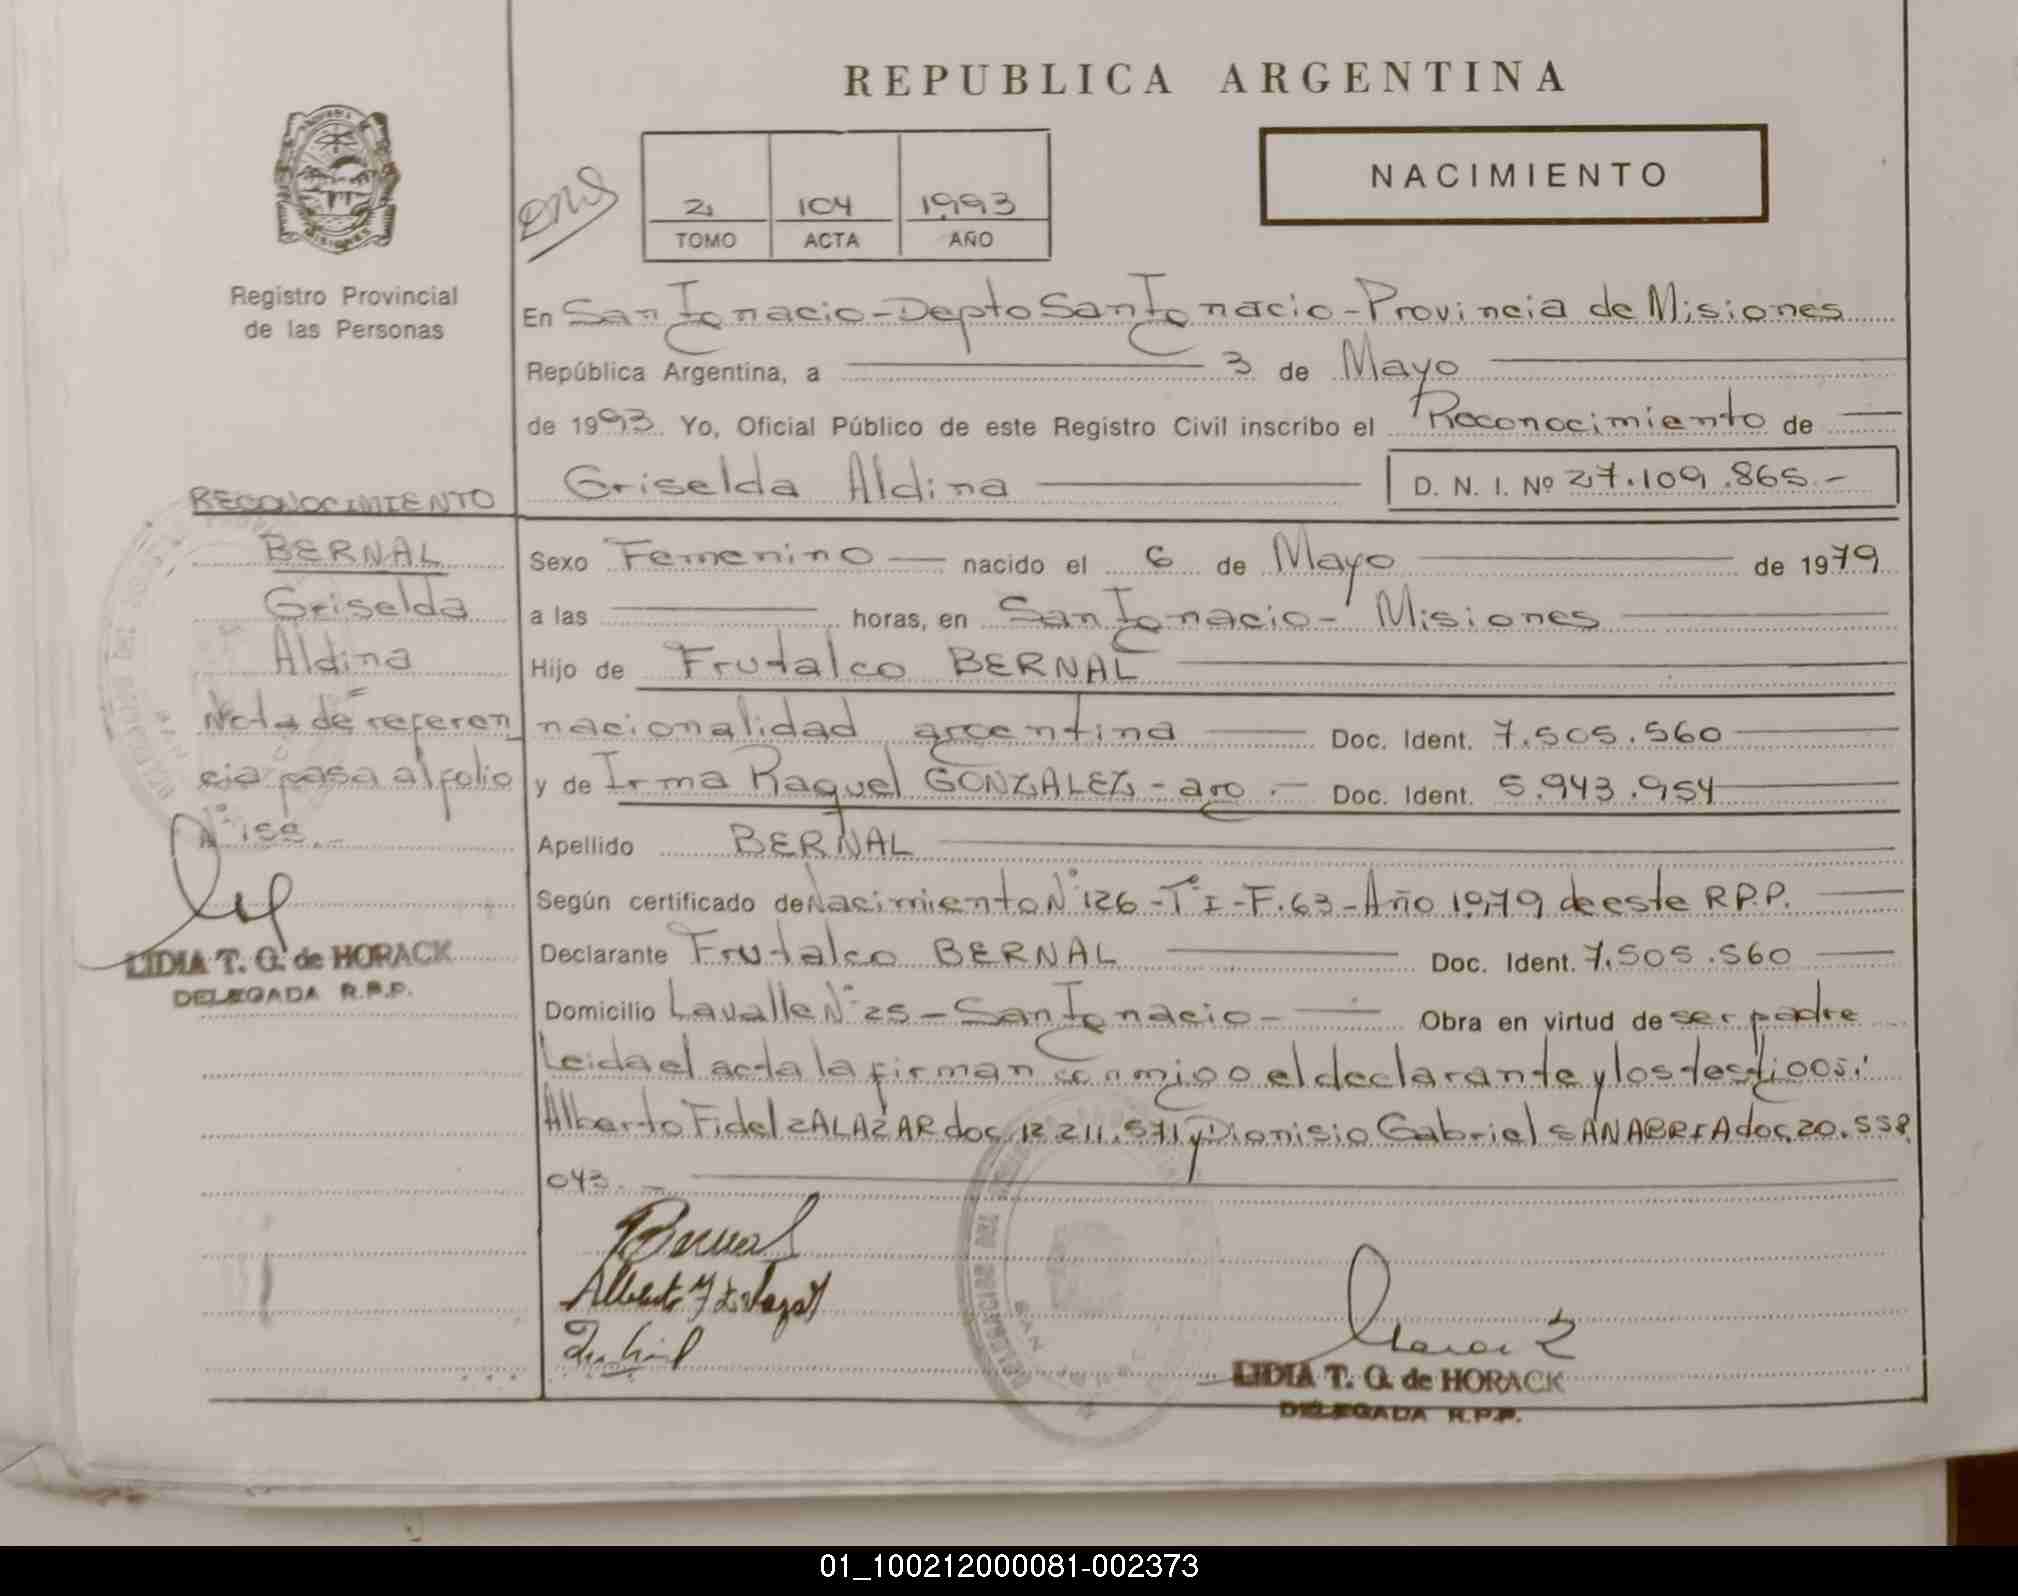 REPUBLICA ARGENTINA
NACIMIENTO
2 104 1993
TOMO ACTA AÑO
Registro Provincial
de las Personas
En San Ignacio - Depto San Ignacio - Provincia de Misiones
República Argentina, a 3 de Mayo
de 1993. Yo, Oficial Público de este Registro Civil inscribo el Reconocimiento de
Griselda Aldina D. N. I. Nº 27.109.865.-
RECONOCIMIENTO
BERNAL
Griselda
Aldina
Nota de referen
cia pasa al folio
LIDIA T. O. de HORACK
DELEGADA R.P.P.
Sexo Femenino nacido el 6 de Mayo de 1979
a las horas, en San Ignacio - Misiones
Hijo de Frutalco BERNAL
nacionalidad argentina Doc. Ident. 7.505.560
y de Irma Raquel GONZALEZ - arg. - Doc. Ident. 5.943.954
Apellido BERNAL
Según certificado de Nacimiento N° 126 - T° I - F. 63 - Año 1979 de este R.P.P.
Declarante Frutalco BERNAL Doc. Ident. 7.505.560
Domicilio Lavalle N° 25 - San Ignacio - Obra en virtud de ser padre
Leida el acta la firman conmigo el declarante y los testigos:
Alberto Fidel ZALAZAR doc. 12.211.571 y Dionisio Gabriel SANABRIA doc. 20.558.
043. -
Bernal
LIDIA T. O. de HORACK
DELEGADA R.P.P.
01_100212000081-002373